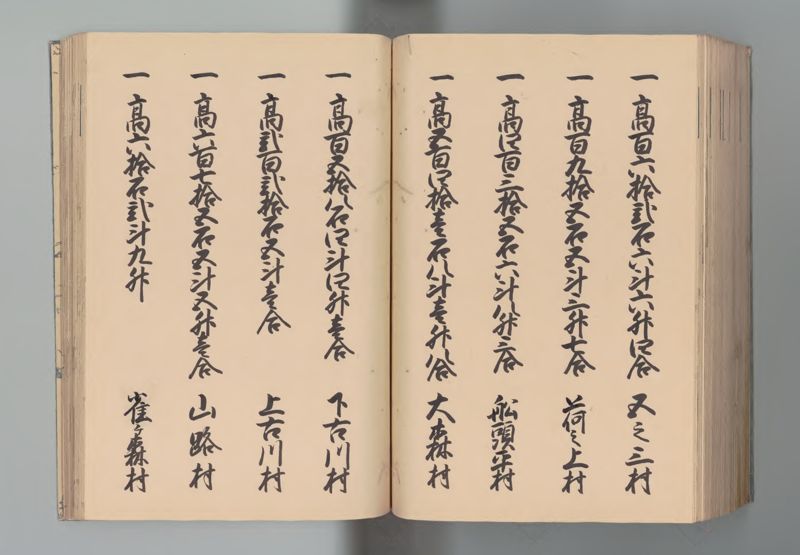 一 高百六拾弐石六斗六升四合 五之三村
一 高百九拾五石五斗三升七合 荷之上村
一 高四百三拾五石六斗八升三合 舩頭平村
一 高五百四拾壱石八斗壱升八合 大森村
一 高百五拾八石四斗四升壱合 下古川村
一 高弐百弐拾石五斗壱合 上古川村
一 高六百七拾五石五斗五升壱合 山路村
一 高六拾石弐斗九升 雀之森村